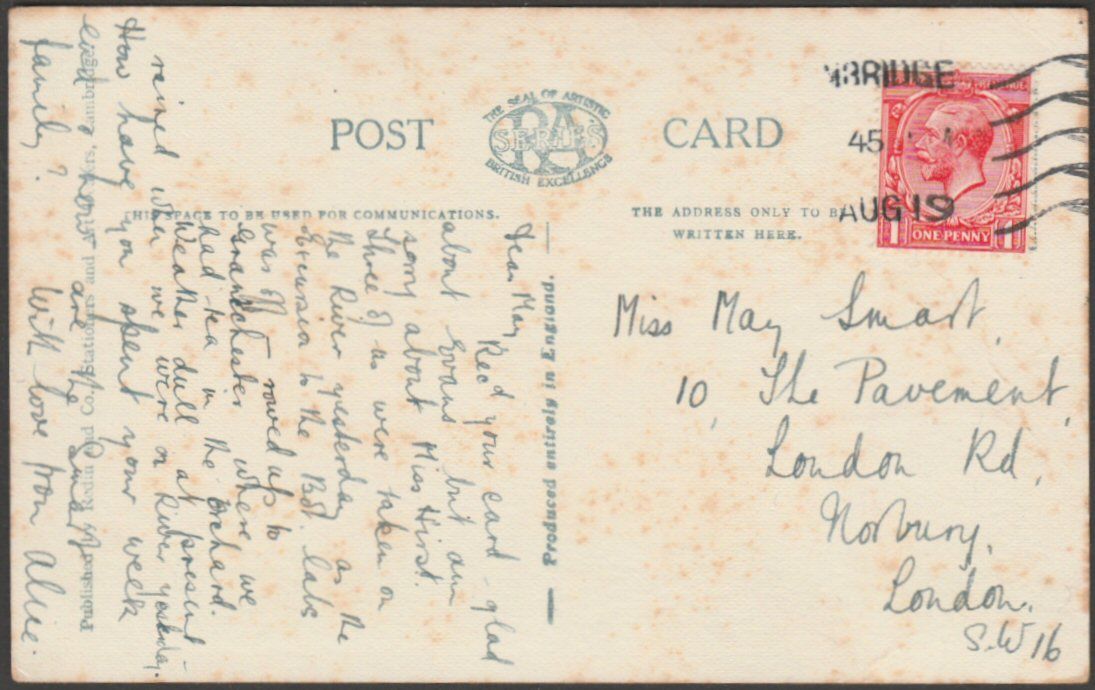 POST CARD
THE SEAL OF ARTISTIC
RA
SERIES
BRITISH EXCELLENCE
THIS SPACE TO BE USED FOR COMMUNICATIONS.
THE ADDRESS ONLY TO BE
WRITTEN HERE.
BRIDGE
45
AUG 19
1 ONE PENNY 1
Miss May Smart,
10, The Pavement,
London Rd,
Norbury,
London.
S.W 16
Dear May
Recd your card - glad
about Evans but am
sorry about Miss Hirst.
Three of us were taken on
the River yesterday as the
Excursion to the Bot. labs
was off rowed up to
Grantchester where we
had tea in the Orchard.
Weather dull at present
rained when we were on River yesterday.
How have you spent your week
end & how are the Smart
family?
With love from Alice.
Produced entirely in England.
Published by
and Co., Stationers and